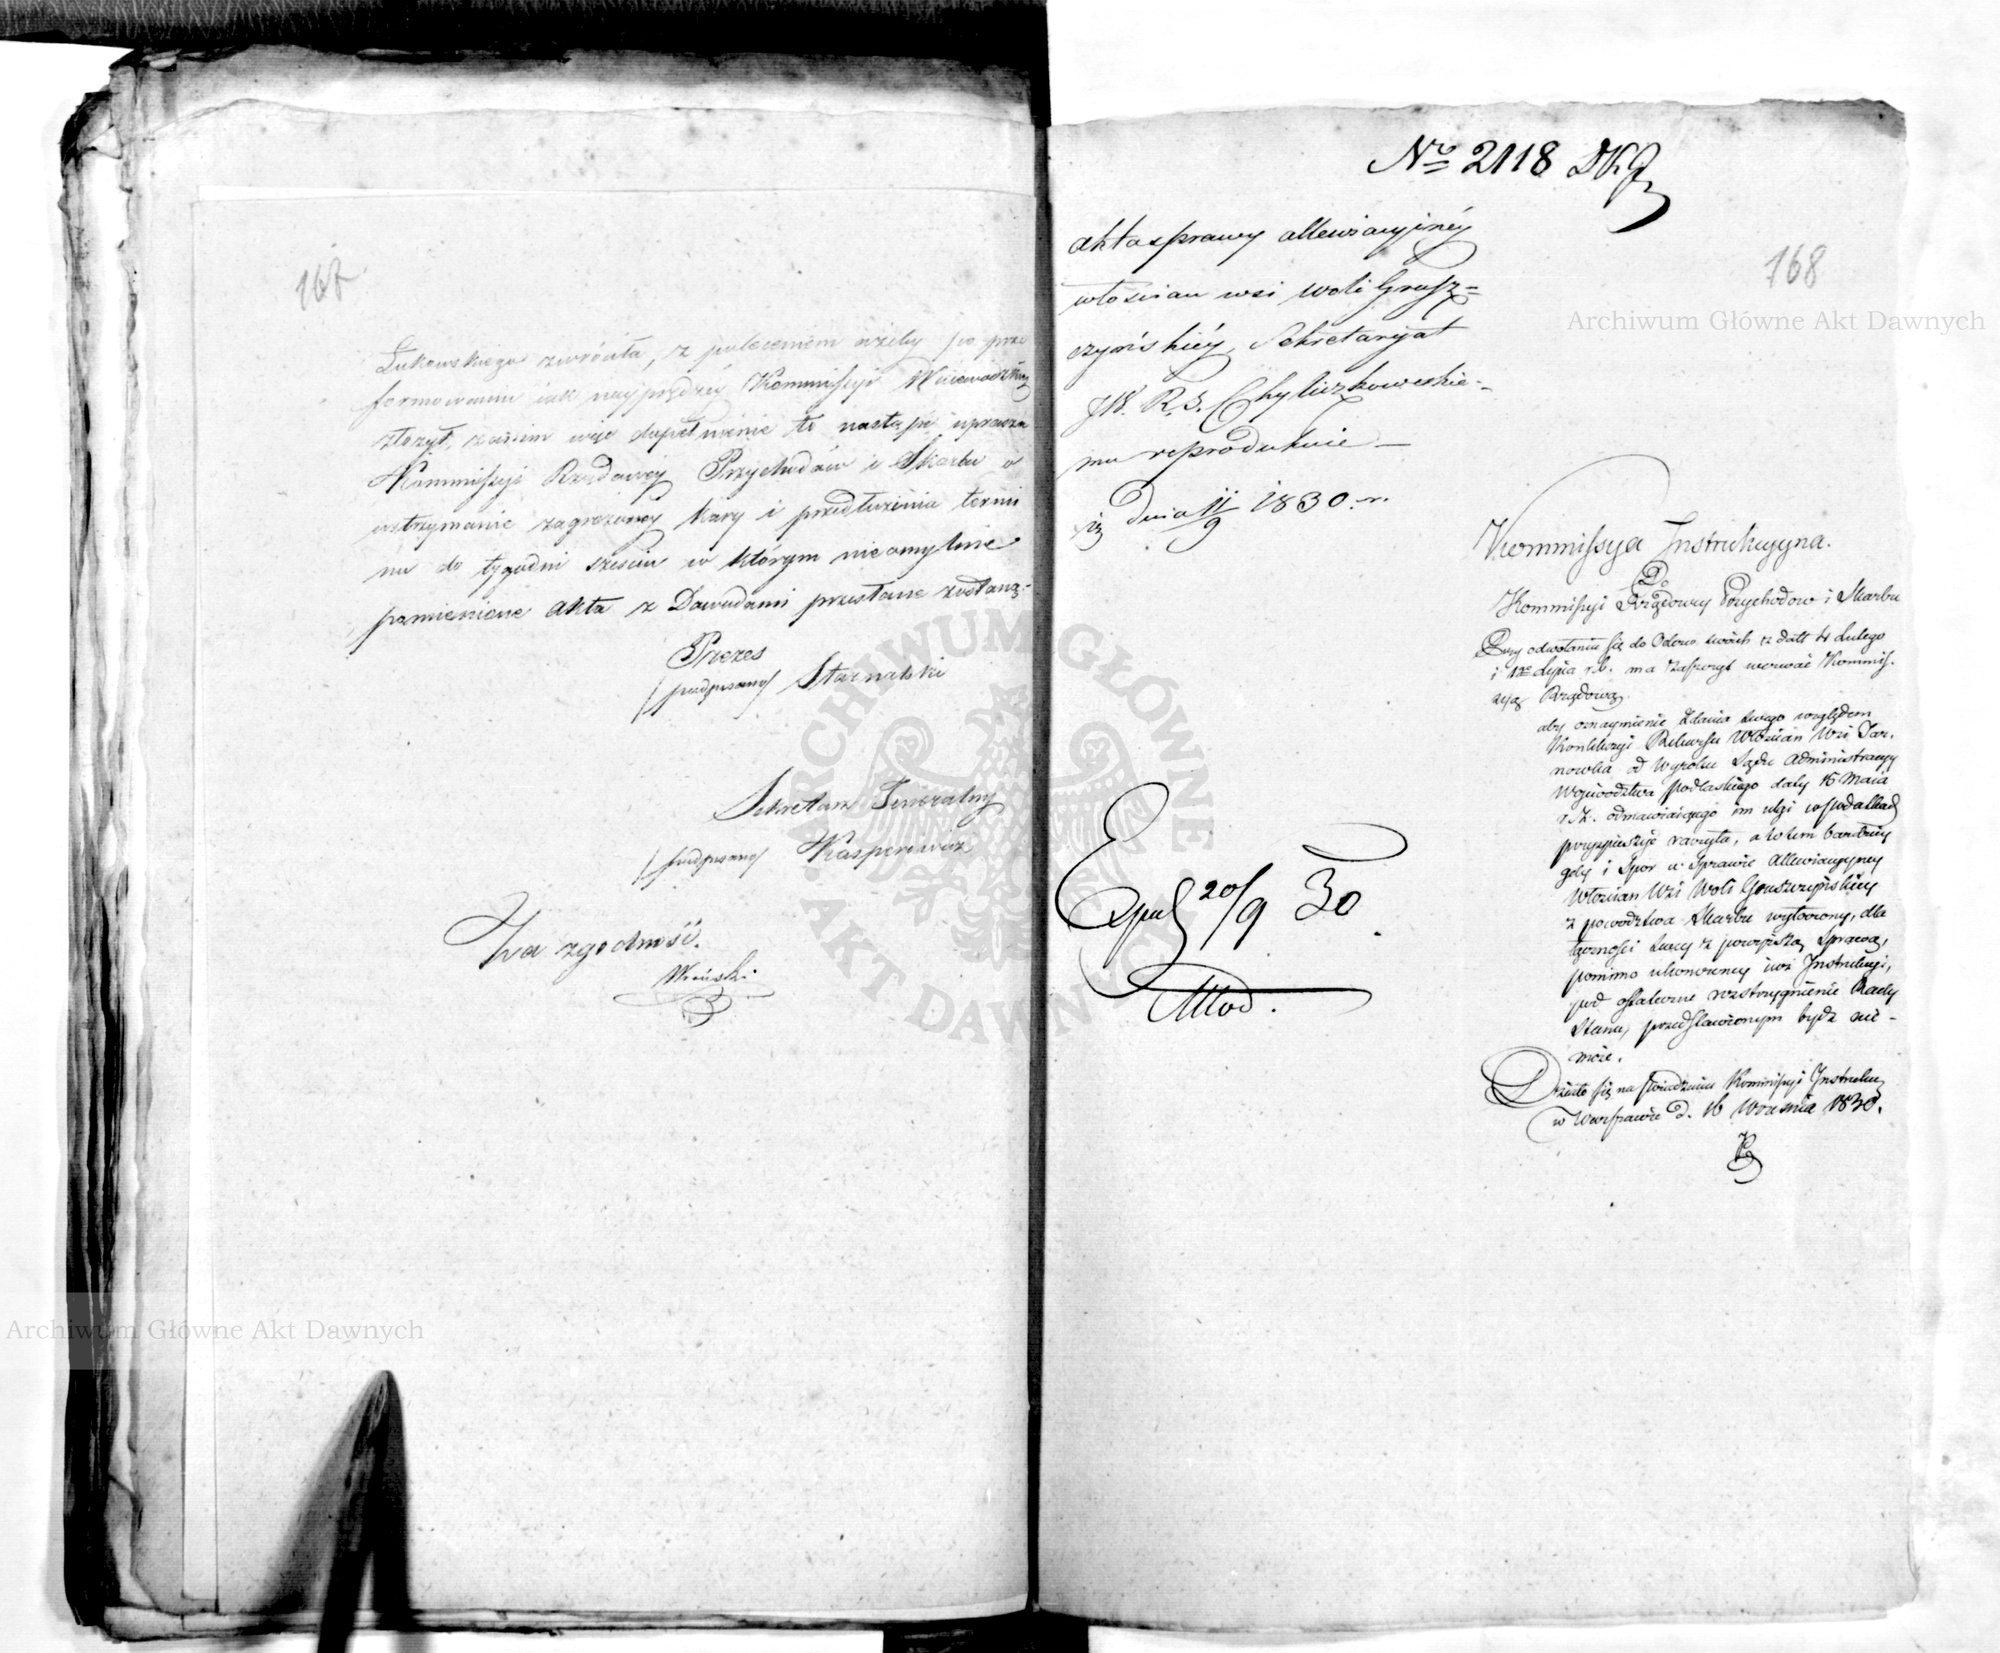 167
Łukowskiego zwróciła, z poleceniem ażeby po prze
formowaniu iak nayprędzey Kommissyi Woiewódzkiey
złożył, zanim więc dopełnienie to nastąpi uprasza
Kommissyi Rządowey Przychodów i Skarbu o
wstrzymanie zagrożoney kary i przedłużenia termi
nu do tygodni sześciu w którym nieomylnie
pomienione akta z Dowodami przesłane zostaną.
Prezes
/podpisano/
Sekretarz Jeneralny
/podpisano/ Kasperowicz
Za zgodność.
Nro 2118
168
akta sprawy allewiacyjnéy
włościan wsi Woli Grusz=
czyńskiéy, Sekretaryat
JW. R. S. Chyliczkowskie-
mu reprodukuie —
dnia 11/9 1830 r.
Exped 20/9 30.
Kommissya Instrukcyyna.
Do
Kommissyi Rządowey Przychodów i Skarbu
Przy odwołaniu się do Odezw swoich z datt 4 Lutego
i 12 Lipca r. b. ma zaszczyt wezwać Kommis.
syą Rządową.
aby oznaymienie Zdania swego względem
Konkluzyi Rekursu Włościan Wsi Tar.
nowka od Wyroku Sądu Administracyy
Woiewództwa Podlaskiego daty 15 Maia
r. z. odmawiaiącego im ulgi w podatkach
przyspieszyć raczyła, a to tem bardziey
gdy i Spor w Sprawie Allewiacyyney
Włościan Wsi Woli Gruszczyńskiey
z powodztwa Skarbu wytoczony, dla
łączności swey z powyższą Sprawą,
pomimo ukończoney iuż Instrukcyi,
pod ostateczne rozstrzygnienie Rady
Stanu, przedstawionym bydź nie-
może.
Działo się na posiedzeniu Kommissyi Instrukc
w Warszawie d. 16 Września 1830.
Archiwum Główne Akt Dawnych
Archiwum Główne Akt Dawnych
ARCHIWUM GŁÓWNE AKT DAWNYCH